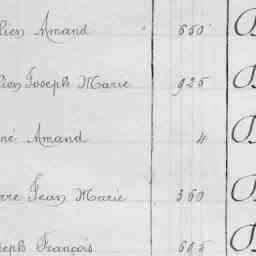 lien Amand 650
lien Joseph Marie 925
né Amand 4
rre Jean Marie 360
seph François 605